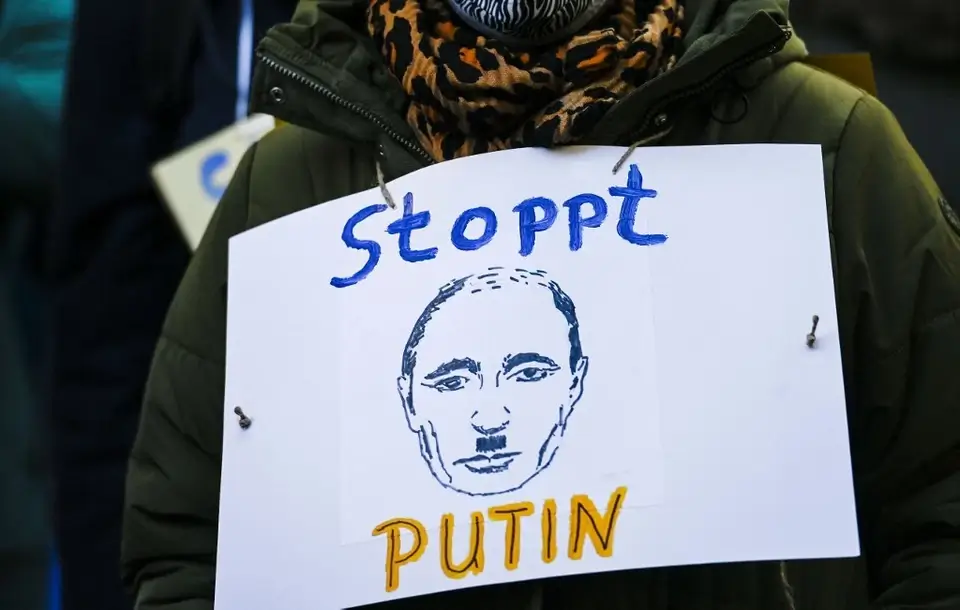 Stoppt
PUTIN